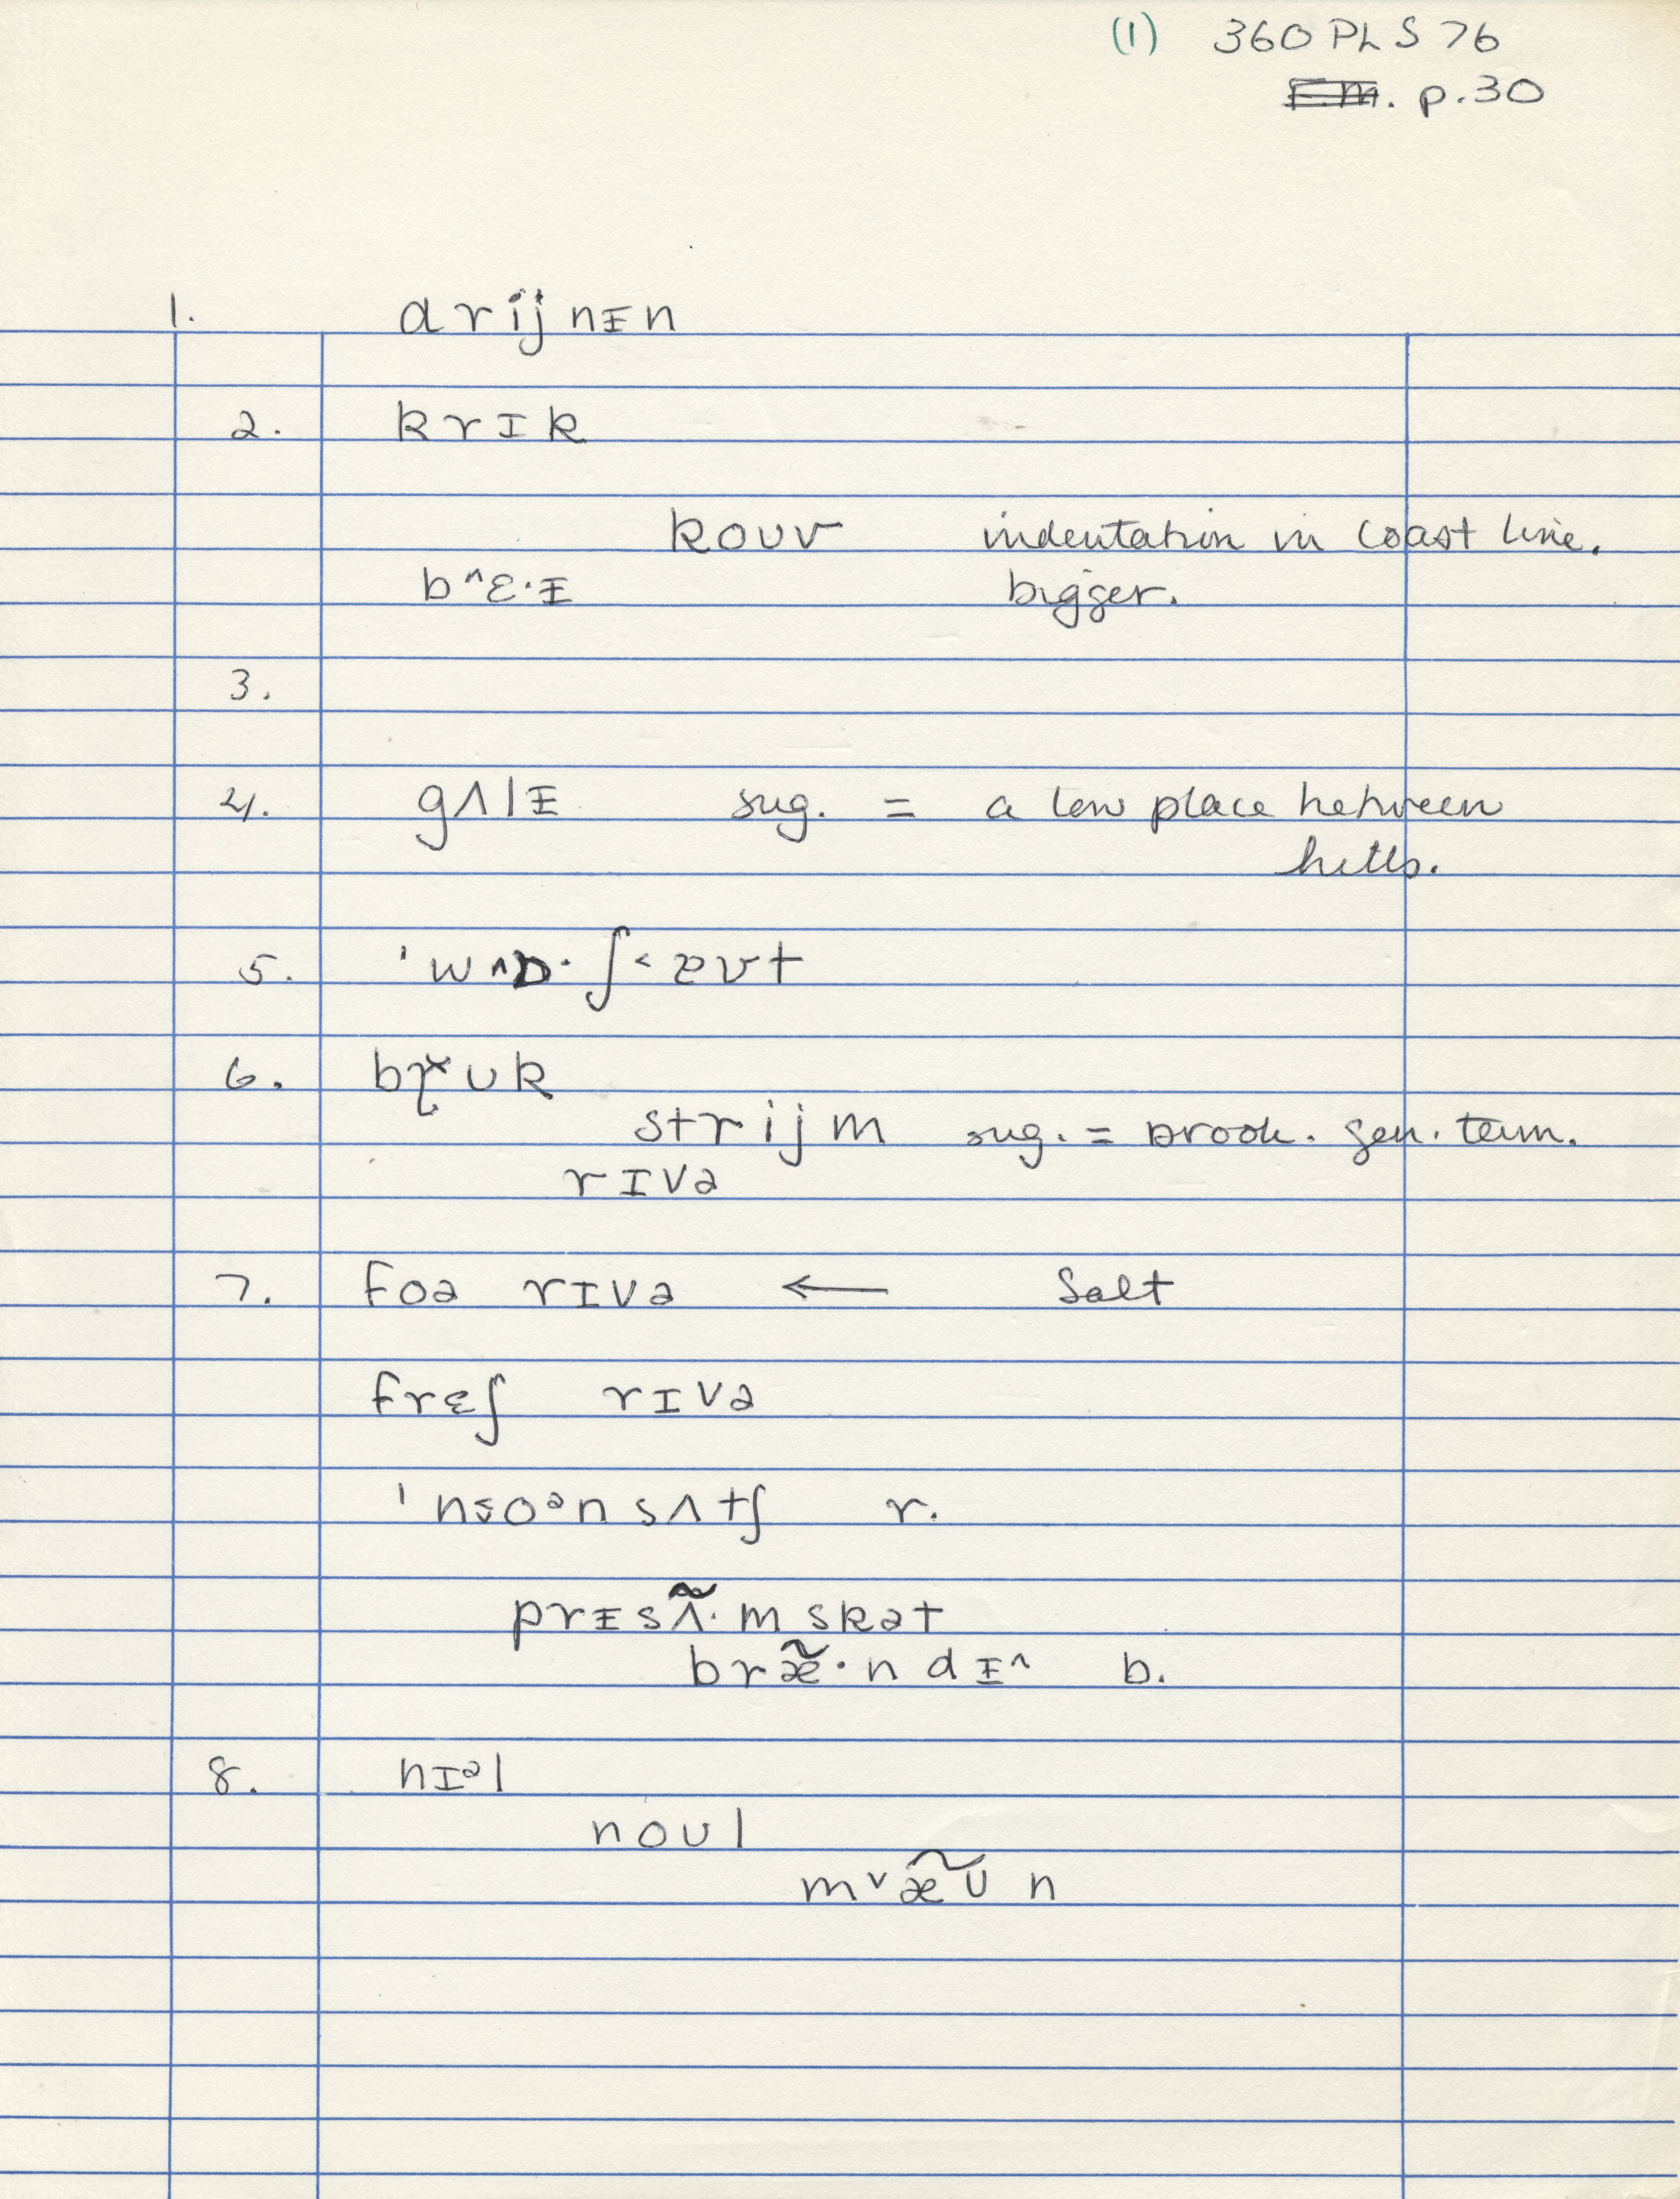 (1) 360 PLS 76
p. 30
1. drijnᵻn
2. krɪk
koʊv indentation in coast line.
b^ɛ·ᵻ bigger.
3.
4. gʌlᵻ sug. = a low place between
hills.
5. 'w^ɒ·ʃ˂æʊt
6. bɽˣʊk
strijm sug. = brook. gen. term.
rɪvə
7. foə rɪvə ← Salt
frɛʃ rɪvə
r.
prᵻsʌ̃·mskət
bræ̃·ndᵻ^ b.
8. nɪᵊl
noʊl
mᵛæ̃ʊn